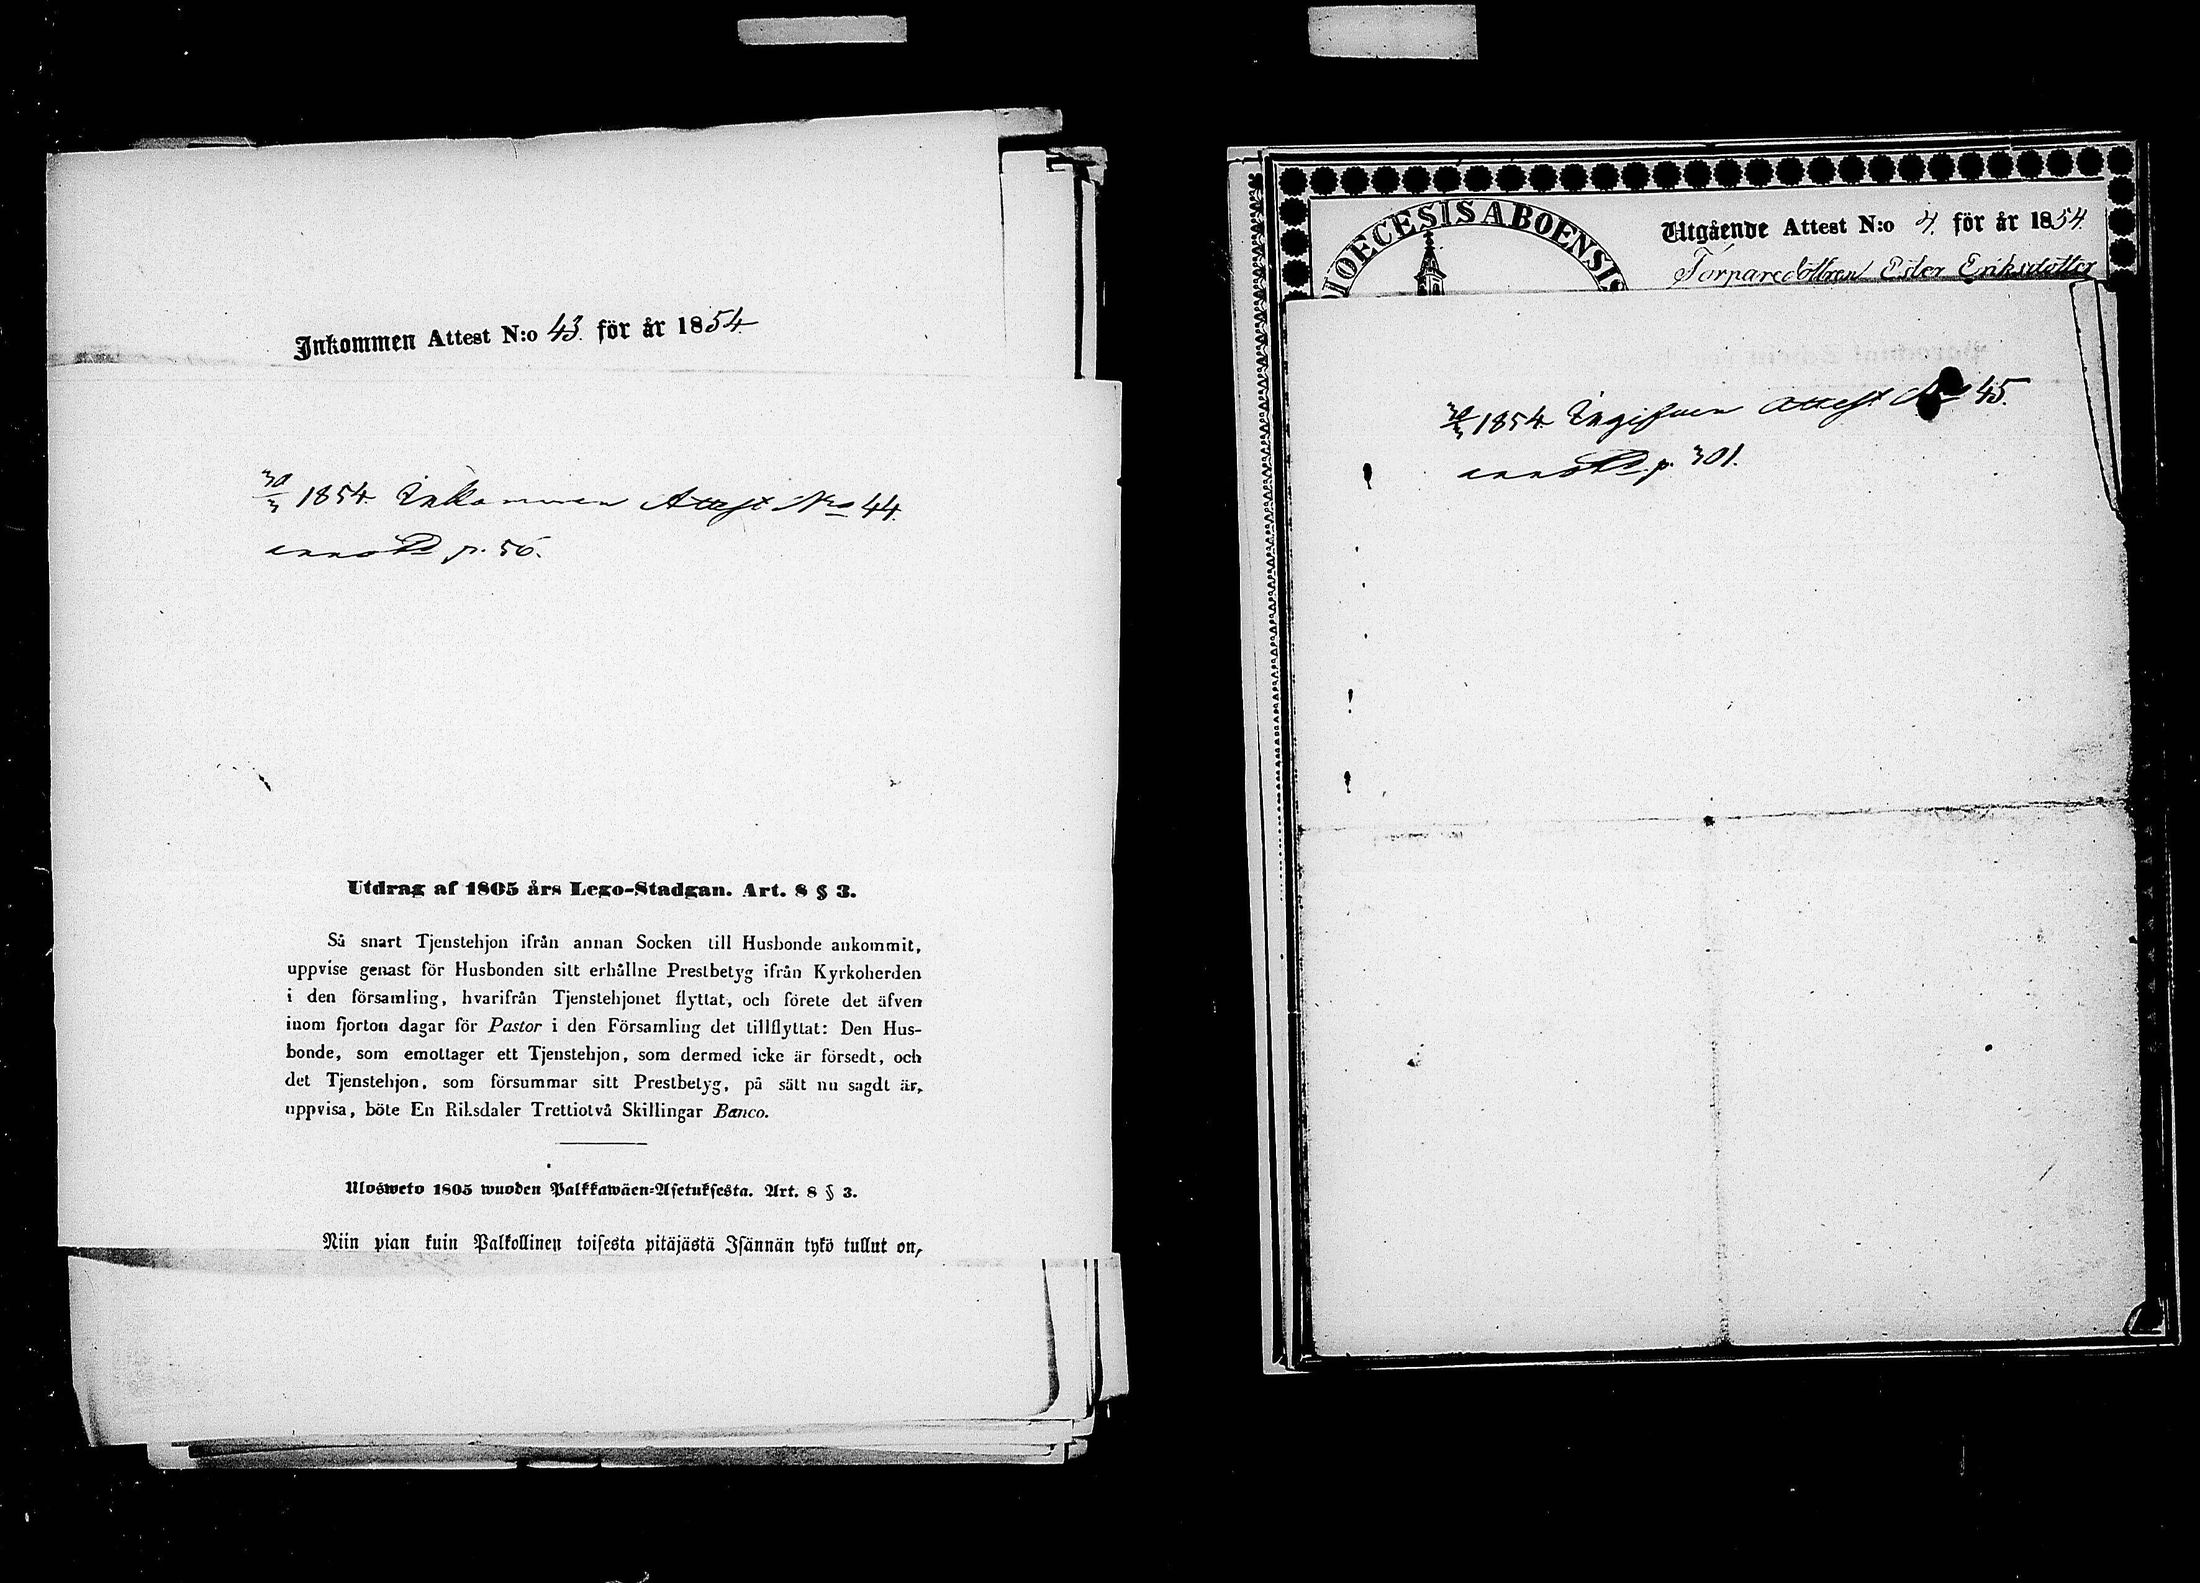 Inkommen Attest N:o 43. för år 1854.
30/3 1854. Inkommen Attest No 44.
annoterd p. 56.
Utdrag af 1805 års Lego-Stadgan. Art. 8 § 3.
Så snart Tjenstehjon ifrån annan Socken till Husbonde ankommit,
uppvise genast för Husbonden sitt erhållne Prestbetyg ifrån Kyrkoherden
i den församling, hvarifrån Tjenstehjonet flyttat, och förete det äfven
inom fjorton dagar för Pastor i den Församling det tillflyttat: Den Hus-
bonde, som emottager ett Tjenstehjon, som dermed icke är försedt, och
det Tjenstehjon, som försummar sitt Prestbetyg, på sätt nu sagdt är,
uppvisa, böte En Riksdaler Trettiotvå Skillingar Banco.
Ulosweto 1805 wuoden Palkkawäen-Asetuksesta. Art. 8 § 3.
Niin pian kuin Palkollinen toisesta pitäjästä Isännän tykö tullut on,
DIOECESIS ABOENSIS
Utgående Attest N:o 4. för år 1854.
Torparedottren Ester Eriksdotter
30/3 1854. Ingifven Attest No 45.
p. 301.